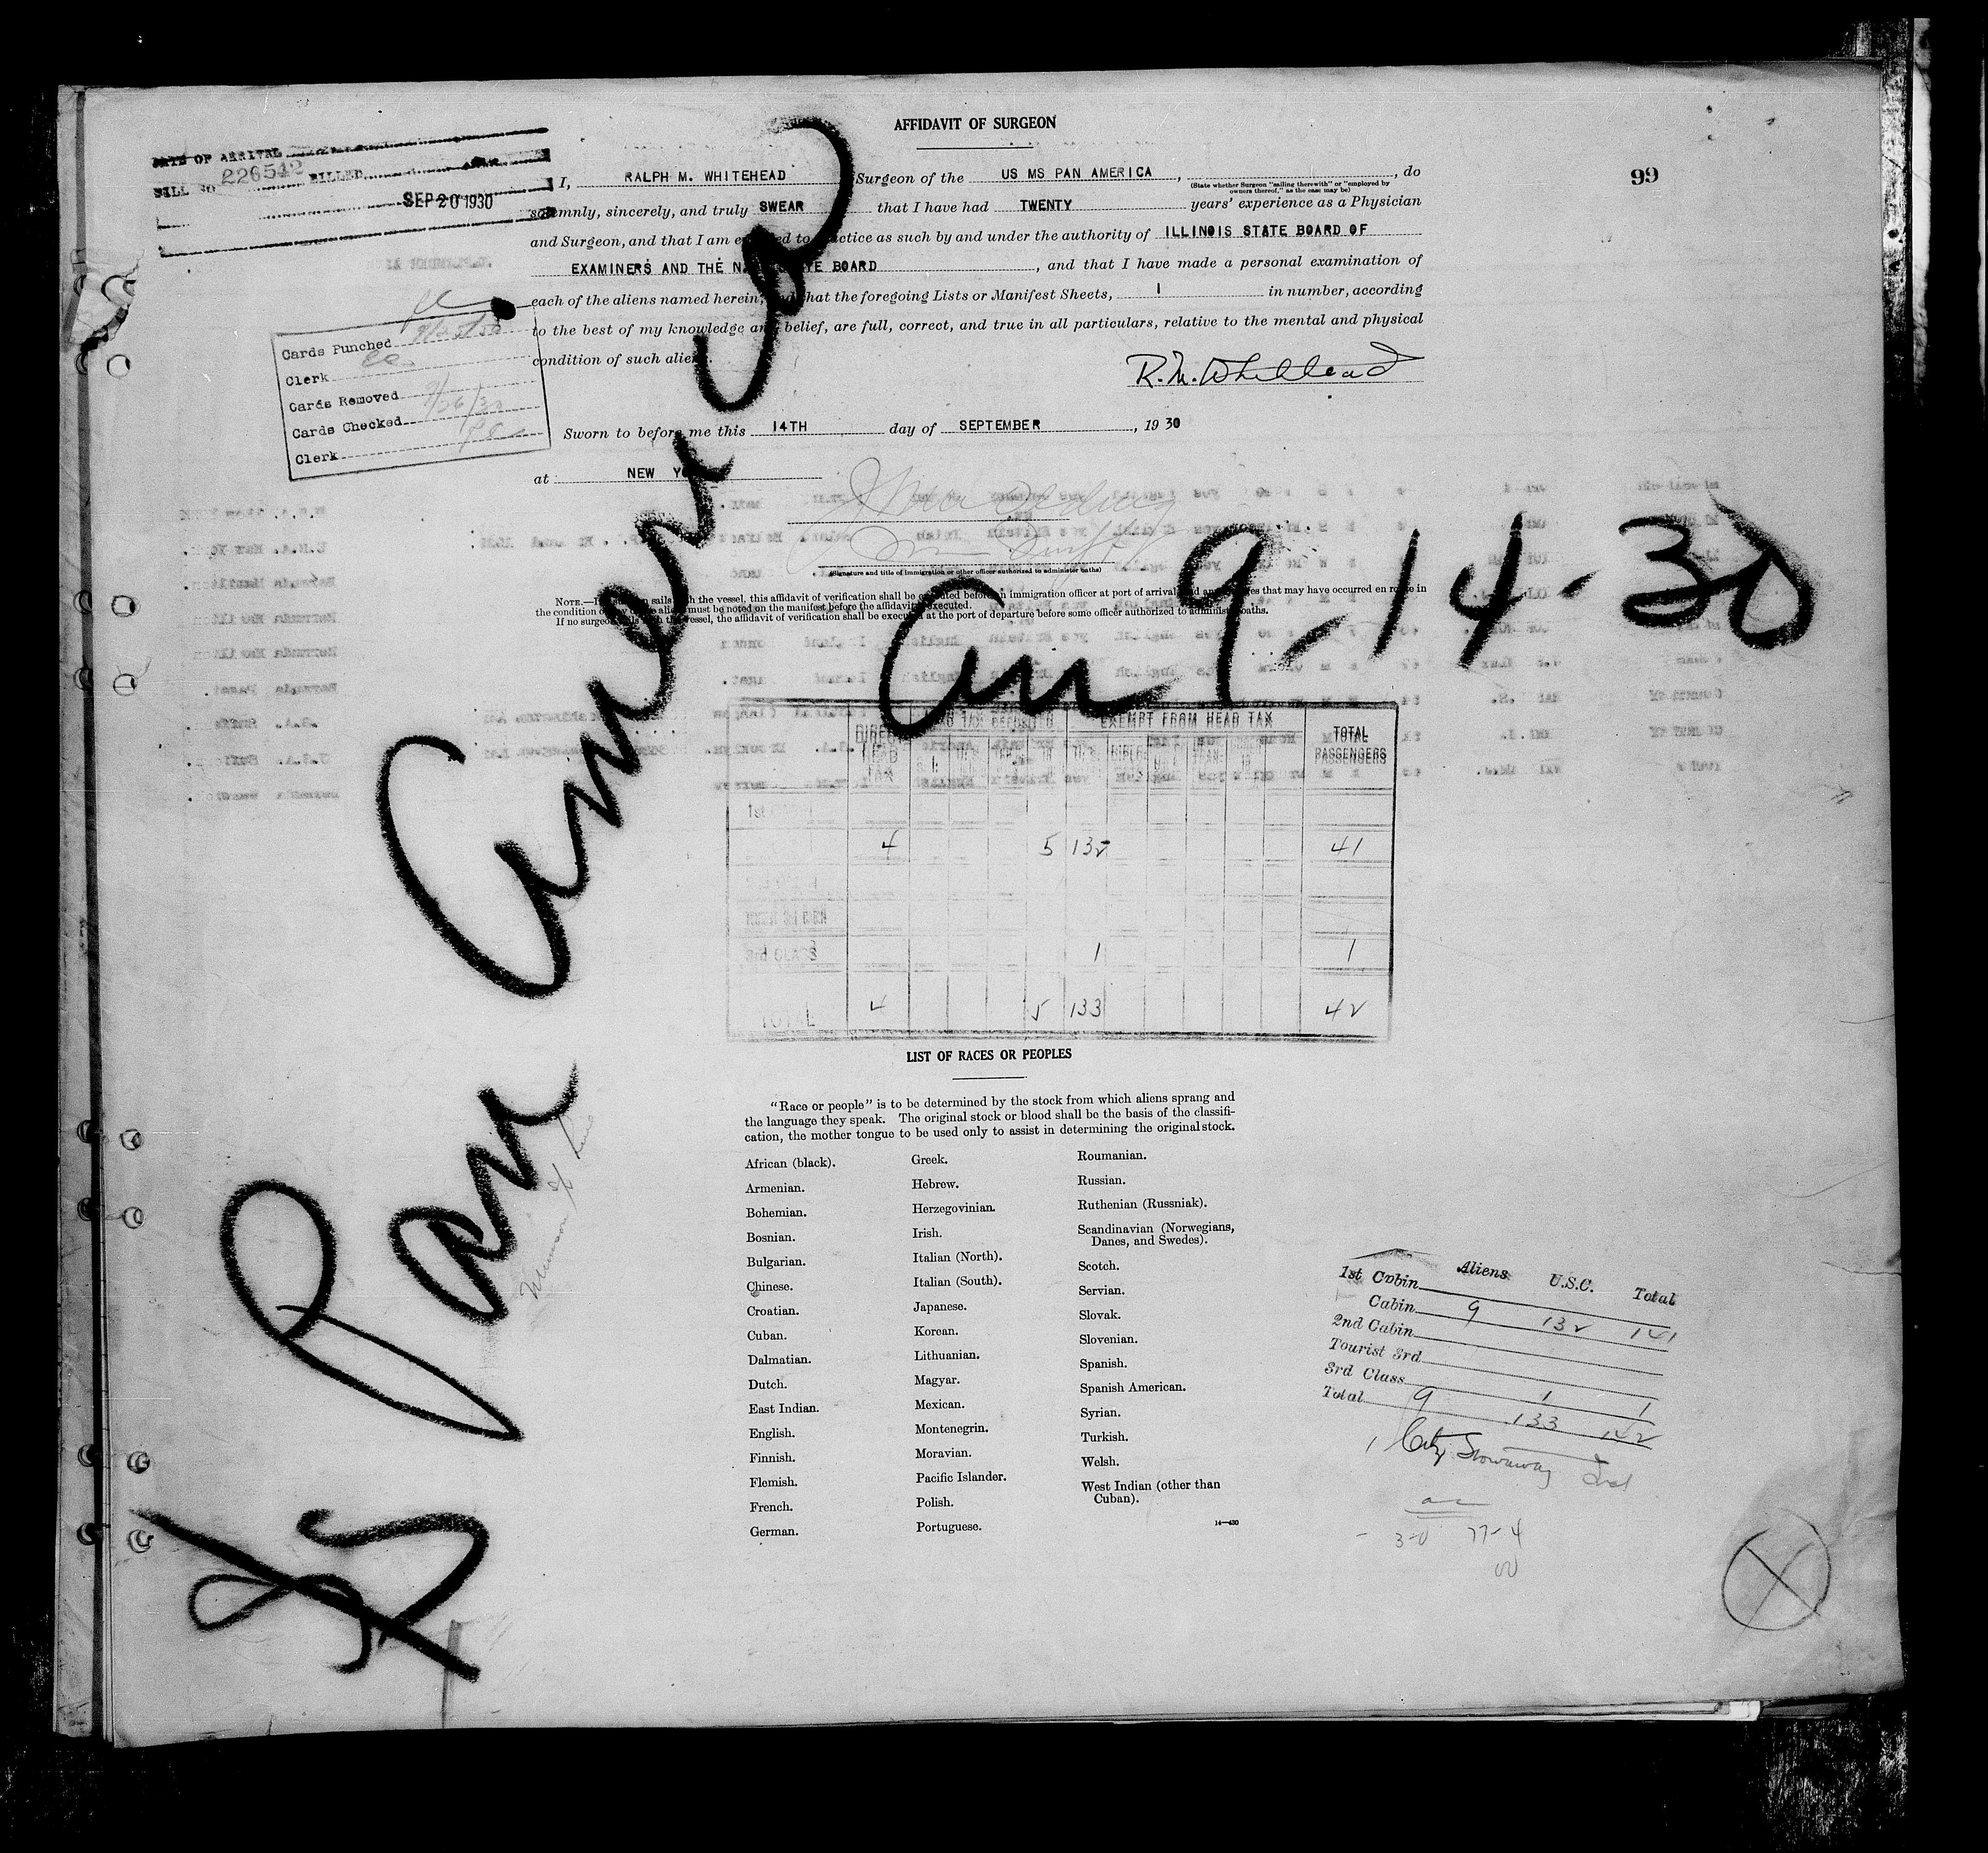 AFFIDAVIT OF SURGEON
99
DATE OF ARRIVAL
BILL NO 226542 BILLED
SEP 20 1930
I, RALPH M. WHITEHEAD Surgeon of the US MS PAN AMERICA, , do
(State whether Surgeon "sailing therewith" or "employed by
owners thereof," as the case may be)
solemnly, sincerely, and truly SWEAR that I have had TWENTY years' experience as a Physician
and Surgeon, and that I am to practice as such by and under the authority of ILLINOIS STATE BOARD OF
EXAMINERS AND THE BOARD, and that I have made a personal examination of
each of the aliens named herein, and that the foregoing Lists or Manifest Sheets, 1 in number, according
to the best of my knowledge and belief, are full, correct, and true in all particulars, relative to the mental and physical
condition of such aliens.
R. M. Whitehead
Cards Punched 9/25/30
Clerk
Cards Removed 9/26/30
Cards Checked
Clerk
Sworn to before me this 14TH day of SEPTEMBER, 19 30
at NEW YORK
(Signature and title of immigration or other officer authorized to administer oaths)
NOTE.—If surgeon sails with the vessel, this affidavit of verification shall be executed before an immigration officer at port of arrival, and any changes that may have occurred en route in
the condition of any of the aliens must be noted on the manifest before the affidavit is executed.
If no surgeon sails with the vessel, the affidavit of verification shall be executed at the port of departure before some officer authorized to administer oaths.
SS Pan America
Arr 9-14-30
Munson SS Line
DIRECT HEAD TAX
HEAD TAX DEPOSITED
EXEMPT FROM HEAD TAX
TOTAL PASSENGERS
1st
4 5 132 41
3rd CLASS 1 1
TOTAL 4 5 133 42
LIST OF RACES OR PEOPLES
"Race or people" is to be determined by the stock from which aliens sprang and
the language they speak. The original stock or blood shall be the basis of the classifi-
cation, the mother tongue to be used only to assist in determining the original stock.
African (black).
Armenian.
Bohemian.
Bosnian.
Bulgarian.
Chinese.
Croatian.
Cuban.
Dalmatian.
Dutch.
East Indian.
English.
Finnish.
Flemish.
French.
German.
Greek.
Hebrew.
Herzegovinian.
Irish.
Italian (North).
Italian (South).
Japanese.
Korean.
Lithuanian.
Magyar.
Mexican.
Montenegrin.
Moravian.
Pacific Islander.
Polish.
Portuguese.
Roumanian.
Russian.
Ruthenian (Russniak).
Scandinavian (Norwegians,
Danes, and Swedes).
Scotch.
Servian.
Slovak.
Slovenian.
Spanish.
Spanish American.
Syrian.
Turkish.
Welsh.
West Indian (other than
Cuban).
14—430
Aliens U.S.C. Total
1st Cabin
Cabin 9 132 141
2nd Cabin
Tourist 3rd
3rd Class 1 1
Total 9 133 142
1 Stowaway